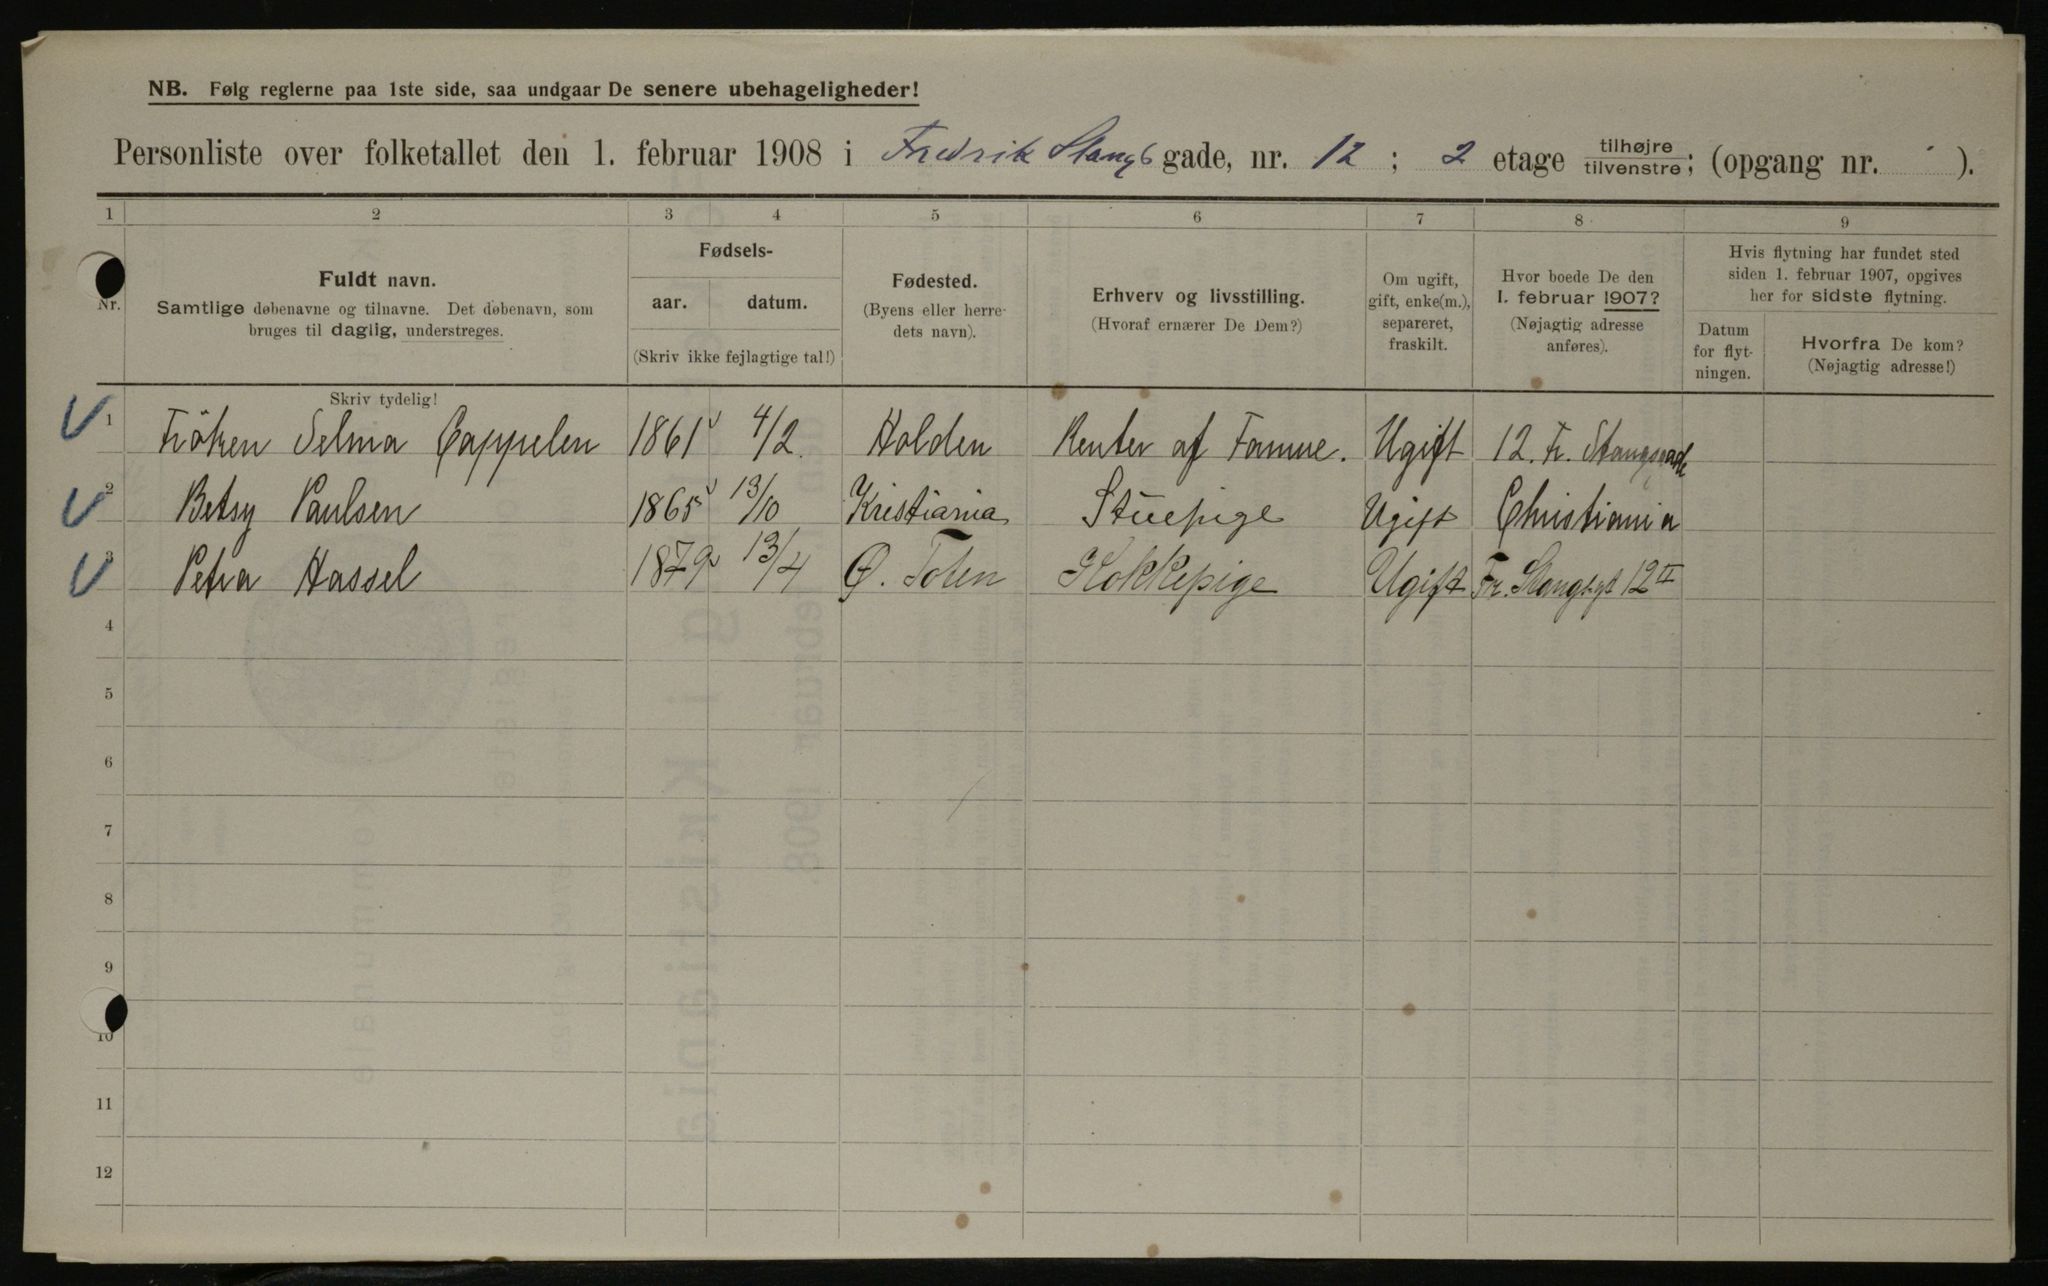 NB. Følg reglerne paa 1ste side, saa undgaar De senere ubehageligheder!
Personliste over folketallet den 1. februar 1908 i Fredrik Stangs gade, nr. 12 ; 2 etage tilhøjre/tilvenstre; (opgang nr. ).
1 2 3 4 5 6 7 8 9
Nr.
Fuldt navn.
Samtlige døbenavne og tilnavne. Det døbenavn, som
bruges til daglig, understreges.
Fødsels-
aar. datum.
(Skriv ikke fejlagtige tal!)
Fødested.
(Byens eller herre-
dets navn).
Erhverv og livsstilling.
(Hvoraf ernærer De Dem?)
Om ugift,
gift, enke(m.),
separeret,
fraskilt.
Hvor boede De den
1. februar 1907?
(Nøjagtig adresse
anføres).
Hvis flytning har fundet sted
siden 1. februar 1907, opgives
her for sidste flytning.
Datum
for flyt-
ningen.
Hvorfra De kom?
(Nøjagtig adresse!)
Skriv tydelig!
1 Fröken Selma Cappelen 1861 4/2. Holden Renter af Formue. Ugift 12. Fr. Stangsgade
2 Betsy Paulsen 1865 13/10 Kristiania Stuepige Ugift Christiania
3 Petra Hassel 1879 13/4 Ø. Toten Kokkepige Ugift Fr. Stangsgt 12 II
4
5
6
7
8
9
10
11
12